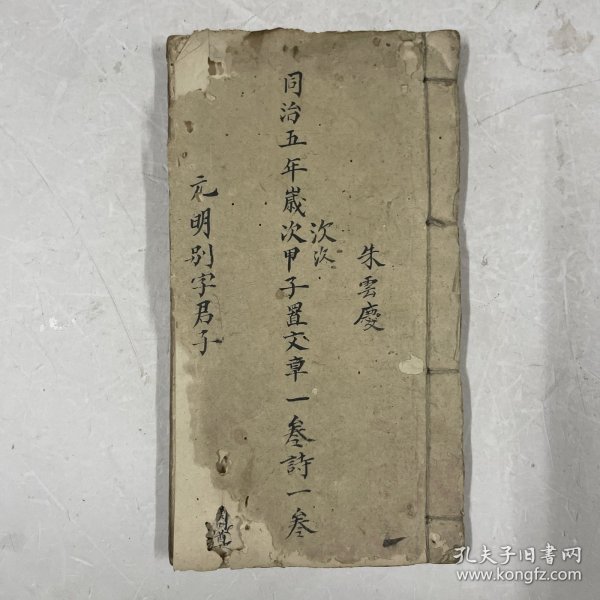 朱雲慶
次次
同治五年嵗次甲子置文章一叁詩一叁
元明别字君子
孔夫子旧书网
www.kongfz.com